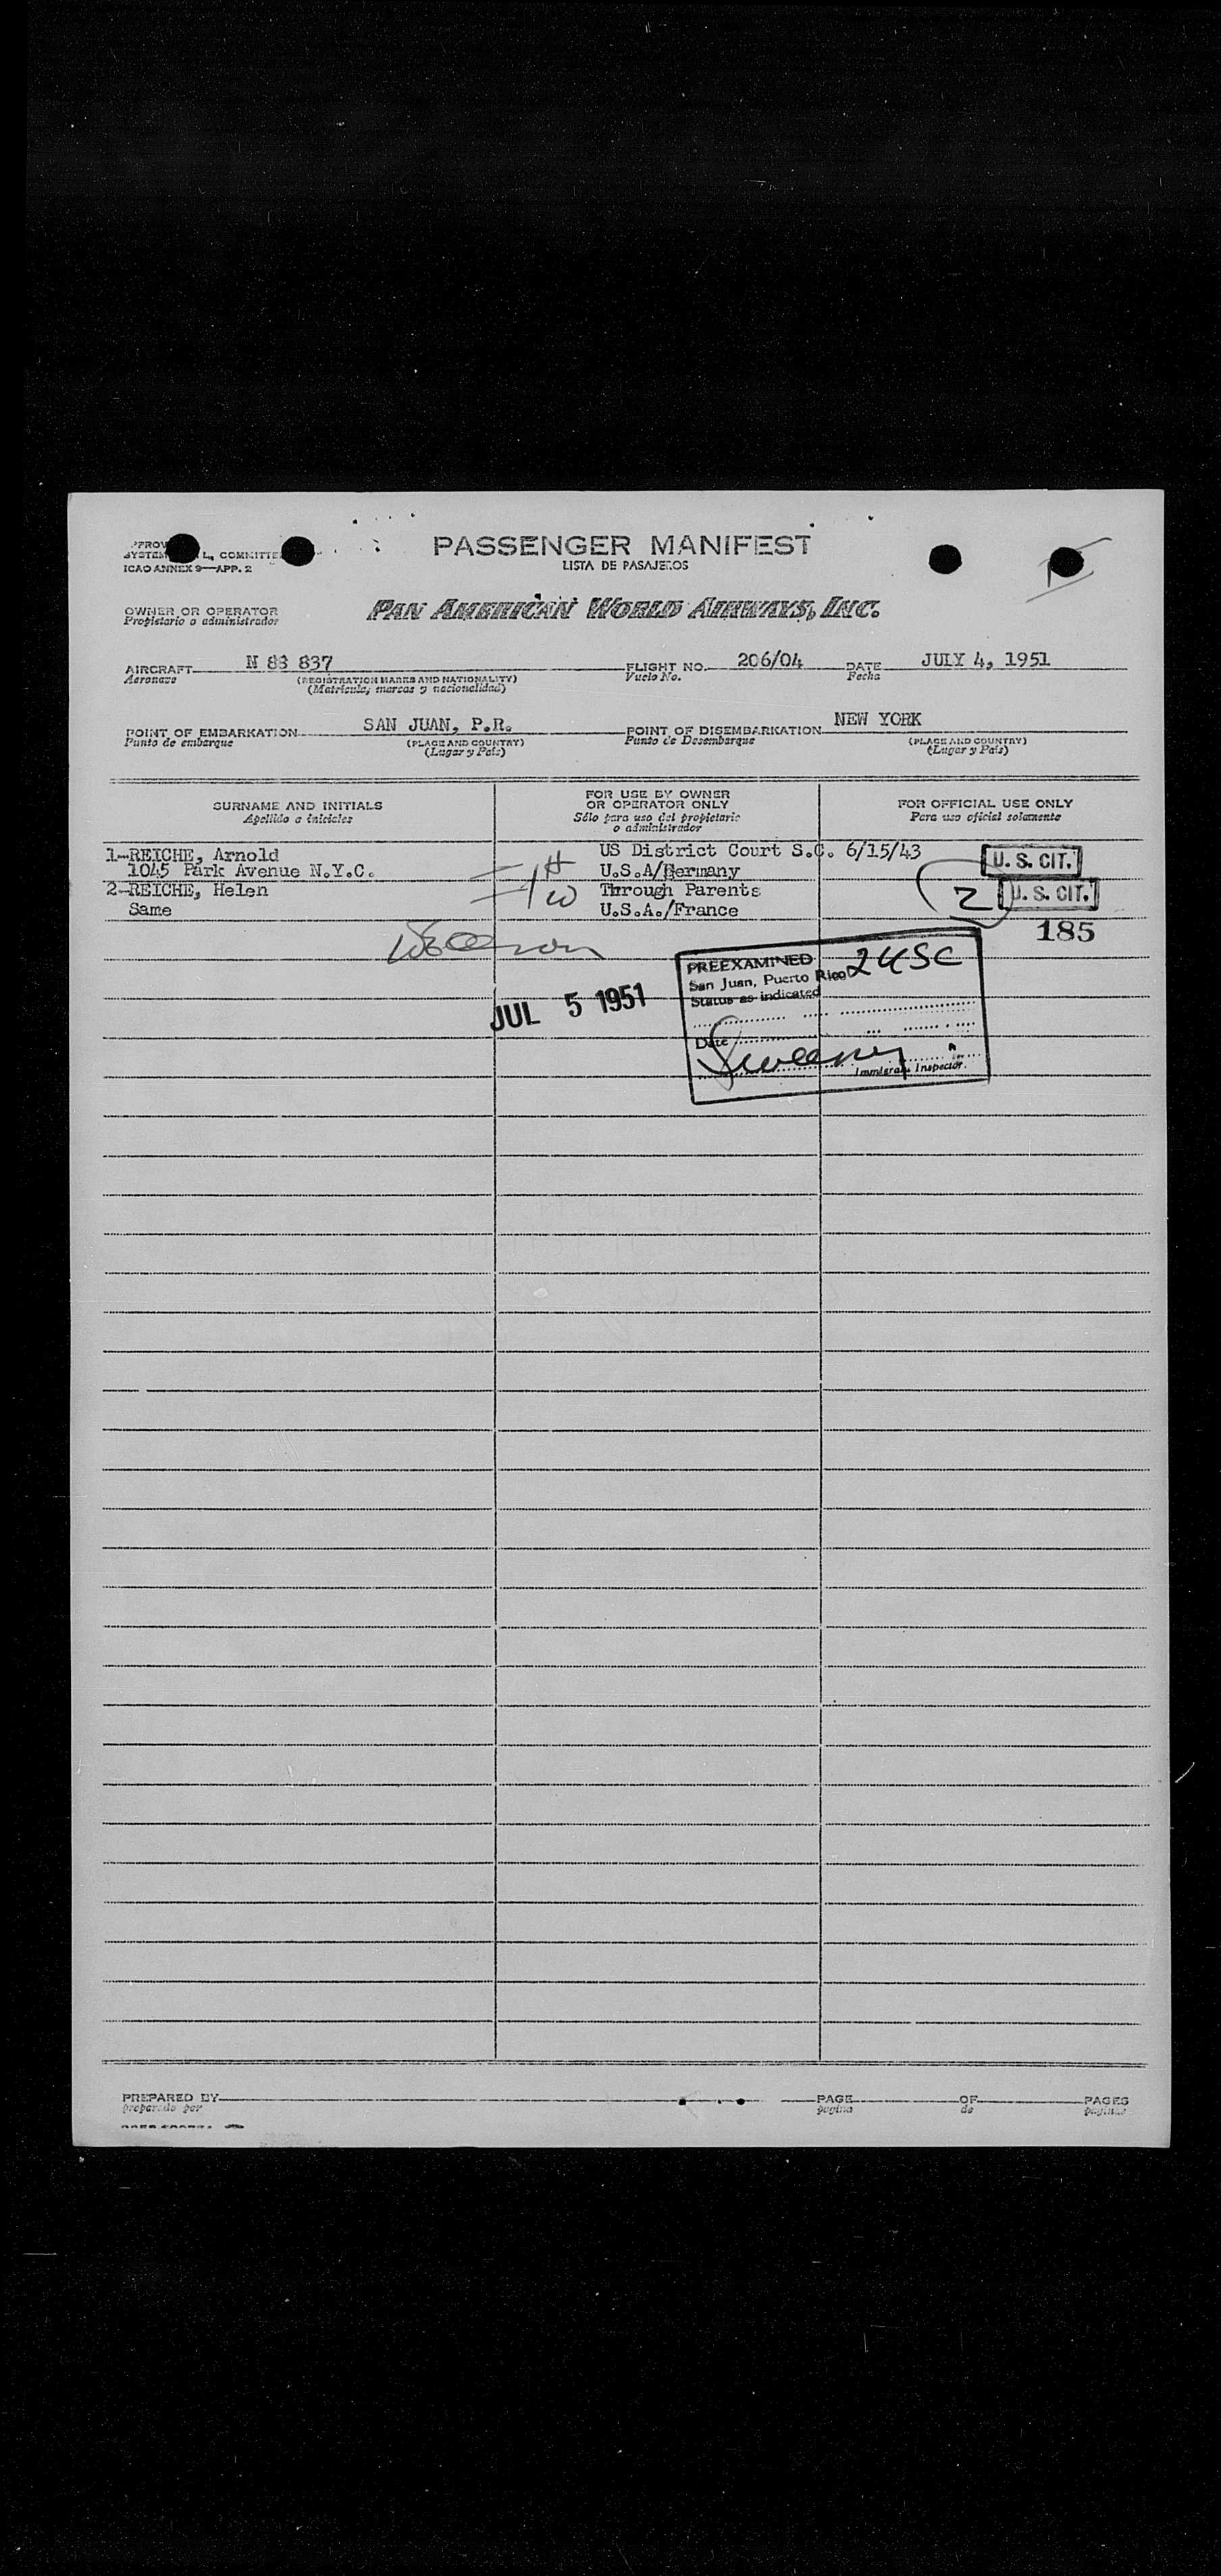 PASSENGER MANIFEST
LISTA DE PASAJEROS
ICAO ANNEX 9—APP. 2
OWNER OR OPERATOR
Propietario o administrador
PAN AMERICAN WORLD AIRWAYS, INC.
AIRCRAFT N 88 837 FLIGHT NO. 206/04 DATE JULY 4, 1951
Aeronave (REGISTRATION MARKS AND NATIONALITY) Vuelo No. Fecha
(Matricula, marcas y nacionalidad)
POINT OF EMBARKATION SAN JUAN, P.R. POINT OF DISEMBARKATION NEW YORK
Punto de embarque (PLACE AND COUNTRY) Punto de Desembarque (PLACE AND COUNTRY)
(Lugar y País) (Lugar y País)
SURNAME AND INITIALS
Apellido e iniciales
FOR USE BY OWNER
OR OPERATOR ONLY
Sólo para uso del propietario
o administrador
FOR OFFICIAL USE ONLY
Para uso oficial solamente
1-REICHE, Arnold US District Court S.C. 6/15/43 U. S. CIT.
1045 Park Avenue N.Y.C. U.S.A/Germany
2-REICHE, Helen Through Parents 2 U. S. CIT.
Same U.S.A./France
185
PREEXAMINED 2 USC
San Juan, Puerto Rico
Status as indicated
JUL 5 1951
Date
Sweeney
Immigrant Inspector.
PREPARED BY PAGE OF PAGES
preparado por pagina de paginas